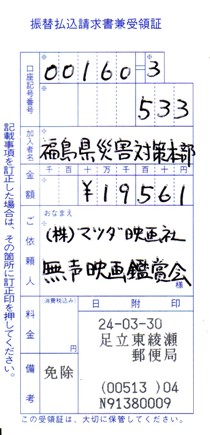 振替払込請求書兼受領証
口座記号番号
00160=3
533
加入者名
福島県災害対策本部
金額
千百十万千百十円
¥19561
ご依頼人
おなまえ
(株)マツダ映画社
無声映画鑑賞会様
料金
消費税込み
円
備考
免除
日附印
24-03-30
足立東綾瀬
郵便局
(00513 )04
N91380009
記載事項を訂正した場合は、その箇所に訂正印を押してください。
この受領証は、大切に保管してください。